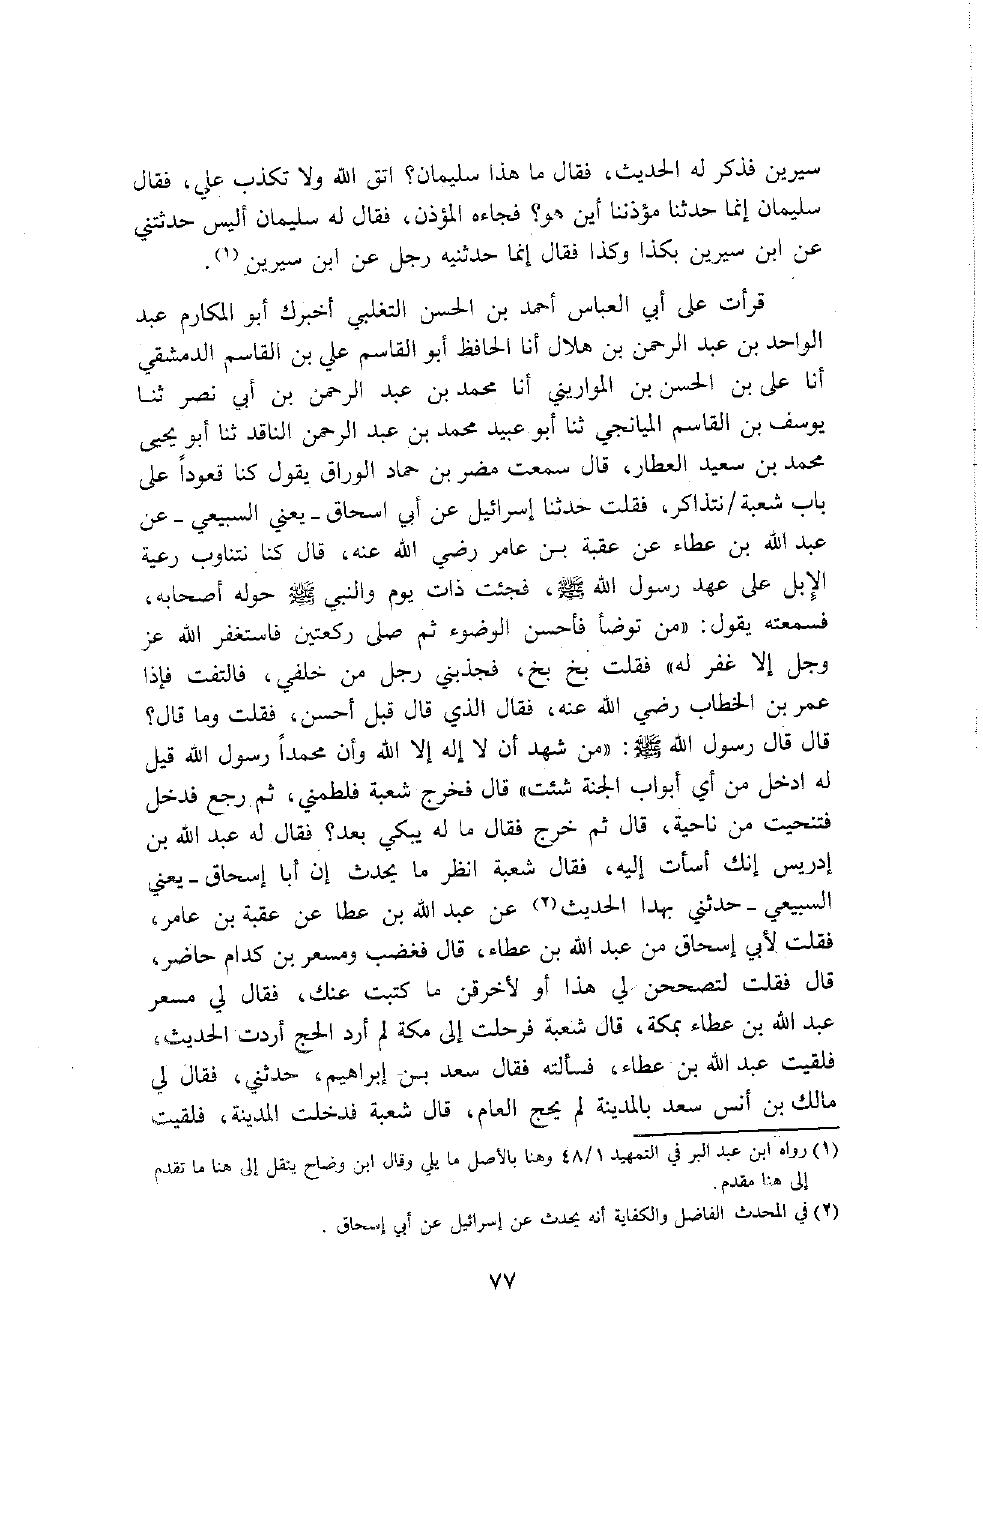 سيرين فذكر له الحديث، فقال ما هذا سليمان؟ اتق الله ولا تكذب علي، فقال
سليمان إنما حدثنا مؤذننا أين هو؟ فجاءه المؤذن، فقال له سليمان أليس حدثتني
عن ابن سيرين بكذا وكذا فقال إنما حدثنيه رجل عن ابن سيرين (١).
قرأت على أبي العباس أحمد بن الحسن التغلبي أخبرك أبو المكارم عبد
الواحد بن عبد الرحمن بن هلال أنا الحافظ أبو القاسم علي بن القاسم الدمشقي
أنا على بن الحسن بن المواريني أنا محمد بن عبد الرحمن بن أبي نصر ثنا
يوسف بن القاسم الميانجي ثنا أبو عبيد محمد بن عبد الرحمن الناقد ثنا أبو يحيى
محمد بن سعيد العطار، قال سمعت مضر بن حماد الوراق يقول كنا قعوداً على
باب شعبة/نتذاكر، فقلت حدثنا إسرائيل عن أبي اسحاق ـ يعني السبيعي ـ عن
عبد الله بن عطاء عن عقبة بن عامر رضي الله عنه، قال كنا نتناوب رعية
الإبل على عهد رسول الله ﷺ، فجئت ذات يوم والنبي ﷺ حوله أصحابه،
فسمعته يقول: «من توضأ فأحسن الوضوء ثم صلى ركعتين فاستغفر الله عز
وجل إلا غفر له» فقلت بخ بخ، فجذبني رجل من خلفي، فالتفت فإذا
عمر بن الخطاب رضي الله عنه، فقال الذي قال قبل أحسن، فقلت وما قال؟
قال قال رسول الله ﷺ: «من شهد أن لا إله إلا الله وأن محمداً رسول الله قيل
له ادخل من أي أبواب الجنة شئت» قال فخرج شعبة فلطمني، ثم رجع فدخل
فتنحيت من ناحية، قال ثم خرج فقال ما له يبكي بعد؟ فقال له عبد الله بن
إدريس إنك أسأت إليه، فقال شعبة انظر ما يحدث إن أبا إسحاق ـ يعني
السبيعي ـ حدثني بهذا الحديث(٢) عن عبد الله بن عطا عن عقبة بن عامر،
فقلت لأبي إسحاق من عبد الله بن عطاء، قال فغضب ومسعر بن كدام حاضر،
قال فقلت لتصححن لي هذا أو لأخرقن ما كتبت عنك، فقال لي مسعر
عبد الله بن عطاء بمكة، قال شعبة فرحلت إلى مكة لم أرد الحج أردت الحديث،
فلقيت عبد الله بن عطاء، فسألته فقال سعد بن إبراهيم، حدثني، فقال لي
مالك بن أنس سعد بالمدينة لم يحج العام، قال شعبة فدخلت المدينة، فلقيت
(١) رواه ابن عبد البر في التمهيد ٤٨/١ وهنا بالأصل ما يلي وقال ابن وضاح ينقل إلى هنا ما تقدم
إلى هنا مقدم.
(٢) في المحدث الفاضل والكفاية أنه يحدث عن إسرائيل عن أبي إسحاق.
٧٧